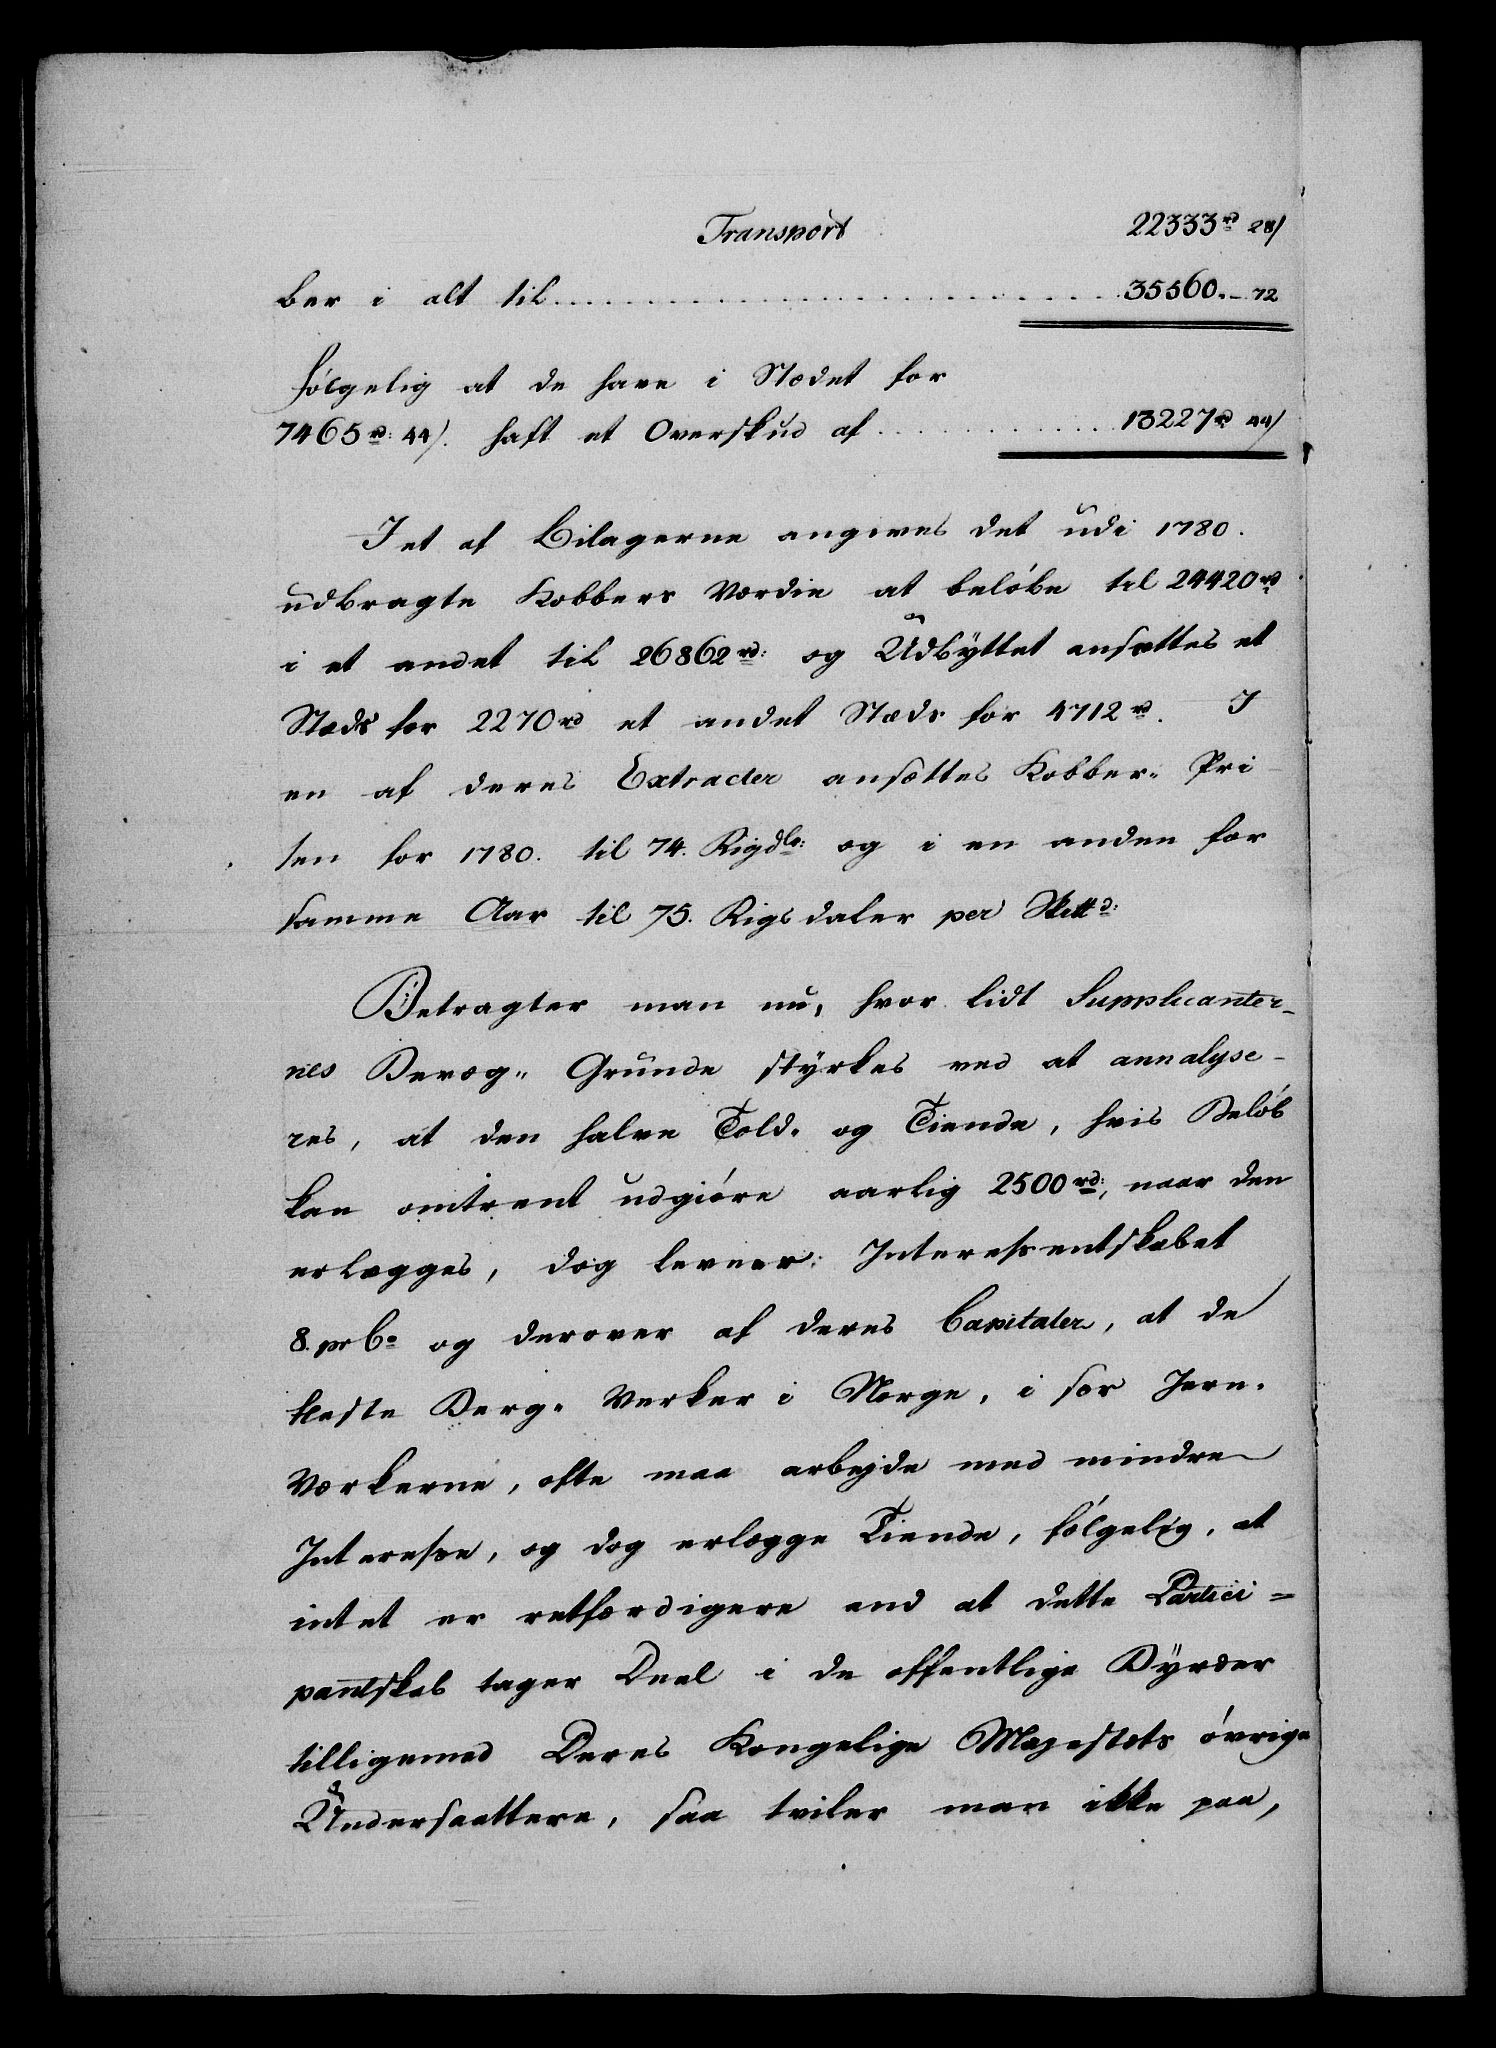 Transport 22333 rd 28/
ber i alt til ........................ 35560. - 72
følgelig at de have i Stædet for
7465 rd: 44/. haft et Overskud af ............ 13227 rd 44/
I et af Bilagerne angives det udi 1780.
udbragte Kobbers Værdie at beløbe til 24420 rd
i et andet til 26862 rd: og Udbyttet ansættes et
Stæds for 2270 rd et andet Stæds for 4712 rd. I
en af deres Extracter ansættes Kobber- Pri
sen for 1780. til 74. Rigdlr: og i en anden for
samme Aar til 75. Rigsdaler per Skttd:
Betragter man nu, hvor lidt Supplicanter-
nes Bevæg- Grunde styrkes ved at annalyse-
res, at den halve Told- og Tiende, hvis Beløb
kan omtrent udgiøre aarlig 2500 rd:, naar den
erlægges, dog levner Interessentskabet
8. pr Co og derover af deres Capitaler, at de
fleste Berg- Verker i Norge, i sær Jern-
Værkerne, ofte maa arbejde med mindre
Interesse, og dog erlægge Tiende, følgelig, at
intet er retfærdigere end at dette Partici=
pantskab tager Deel i de offentlige Byrder
tilligemed Deres Kongelige Majestæts øvrige
Undersaattere, saa tviler man ikke paa,